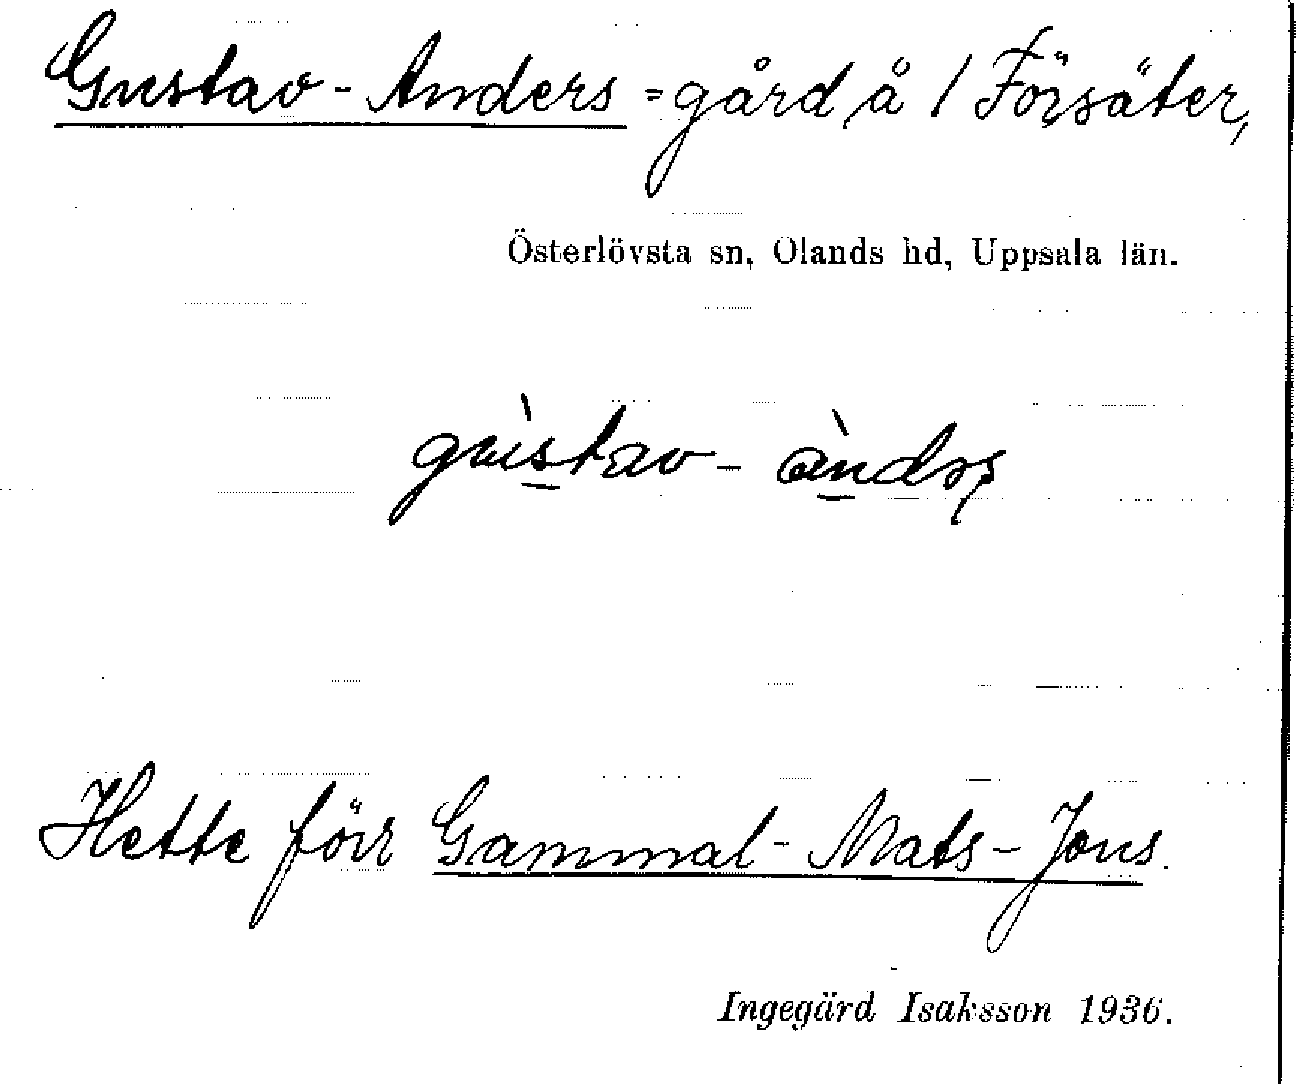 Gustav-Anders =gård å 1 Försäter,
Österlövsta sn, Olands hd, Uppsala län.
gùstav- àndəʂ
Hette förr Gammal-Mats-Jons.
Ingegärd Isaksson 1936.